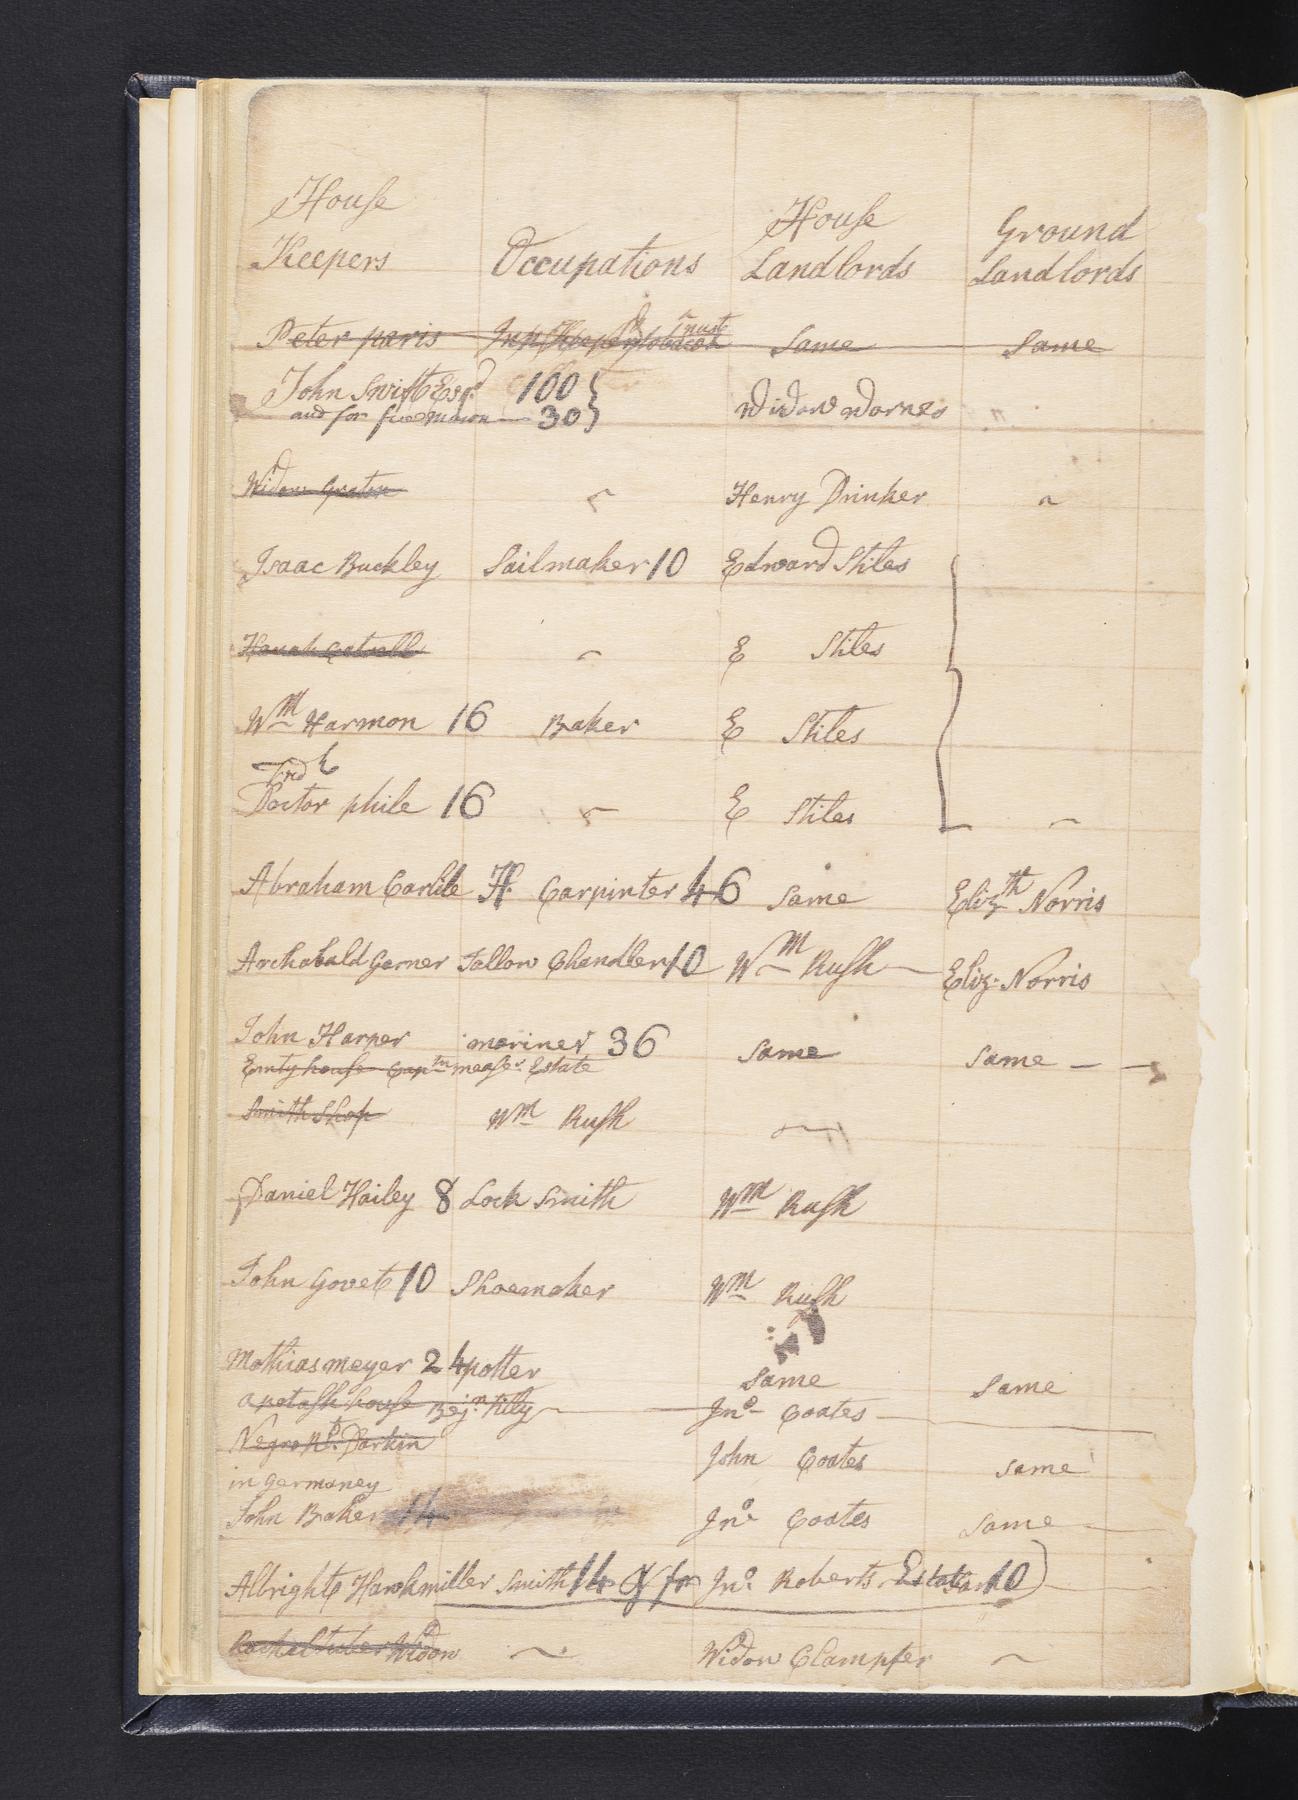 House
Keepers Occupations House Landlords Ground Landlords
Peter paris Inn Keeper Same Same
John Swift Esqr 100
and for 30 Widow Warner
Widow Henry Drinker
Isaac Buckley Sailmaker 10 Edward Stiles
Hanah E Stiles
Wm Harmon 16 Baker E Stiles
Fredk
Doctor phile 16 E Stiles
Abraham Carlile H. Carpinter 46 Same Elizth Norris
Archabald Garner Tallow Chandler 10 Wm Rush Eliz. Norris
John Harper mariner 36 Same Same
Emty house Captn Estate
Smith Shop Wm Rush
Daniel Hailey 8 Lock Smith Wm Rush
John Govet 10 Shoemaker Wm Rush
Mathias meyer 24 potter Same Same
a potash house Benjn Jno Coates
Negro Robt. Darkin John Coates Same
in germaney
John Baker 14 Jno. Coates Same
Albright Hawkmiller Smith 14 & for Jno. Roberts Estate 10
Rachal Stuber Widow Widow Clampfer